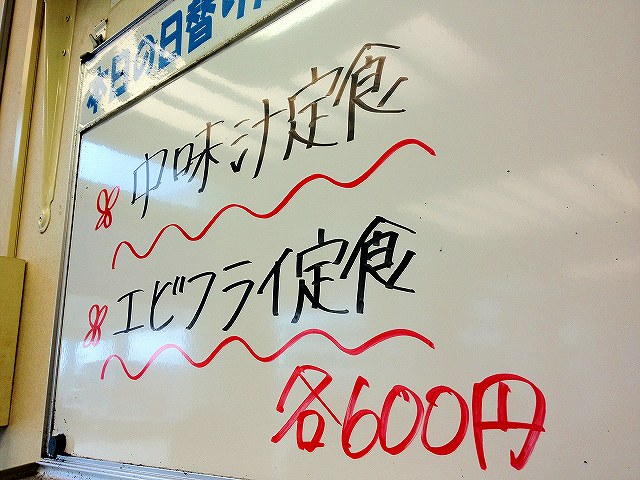 本日の日替り
中味汁定食
エビフライ定食
各600円